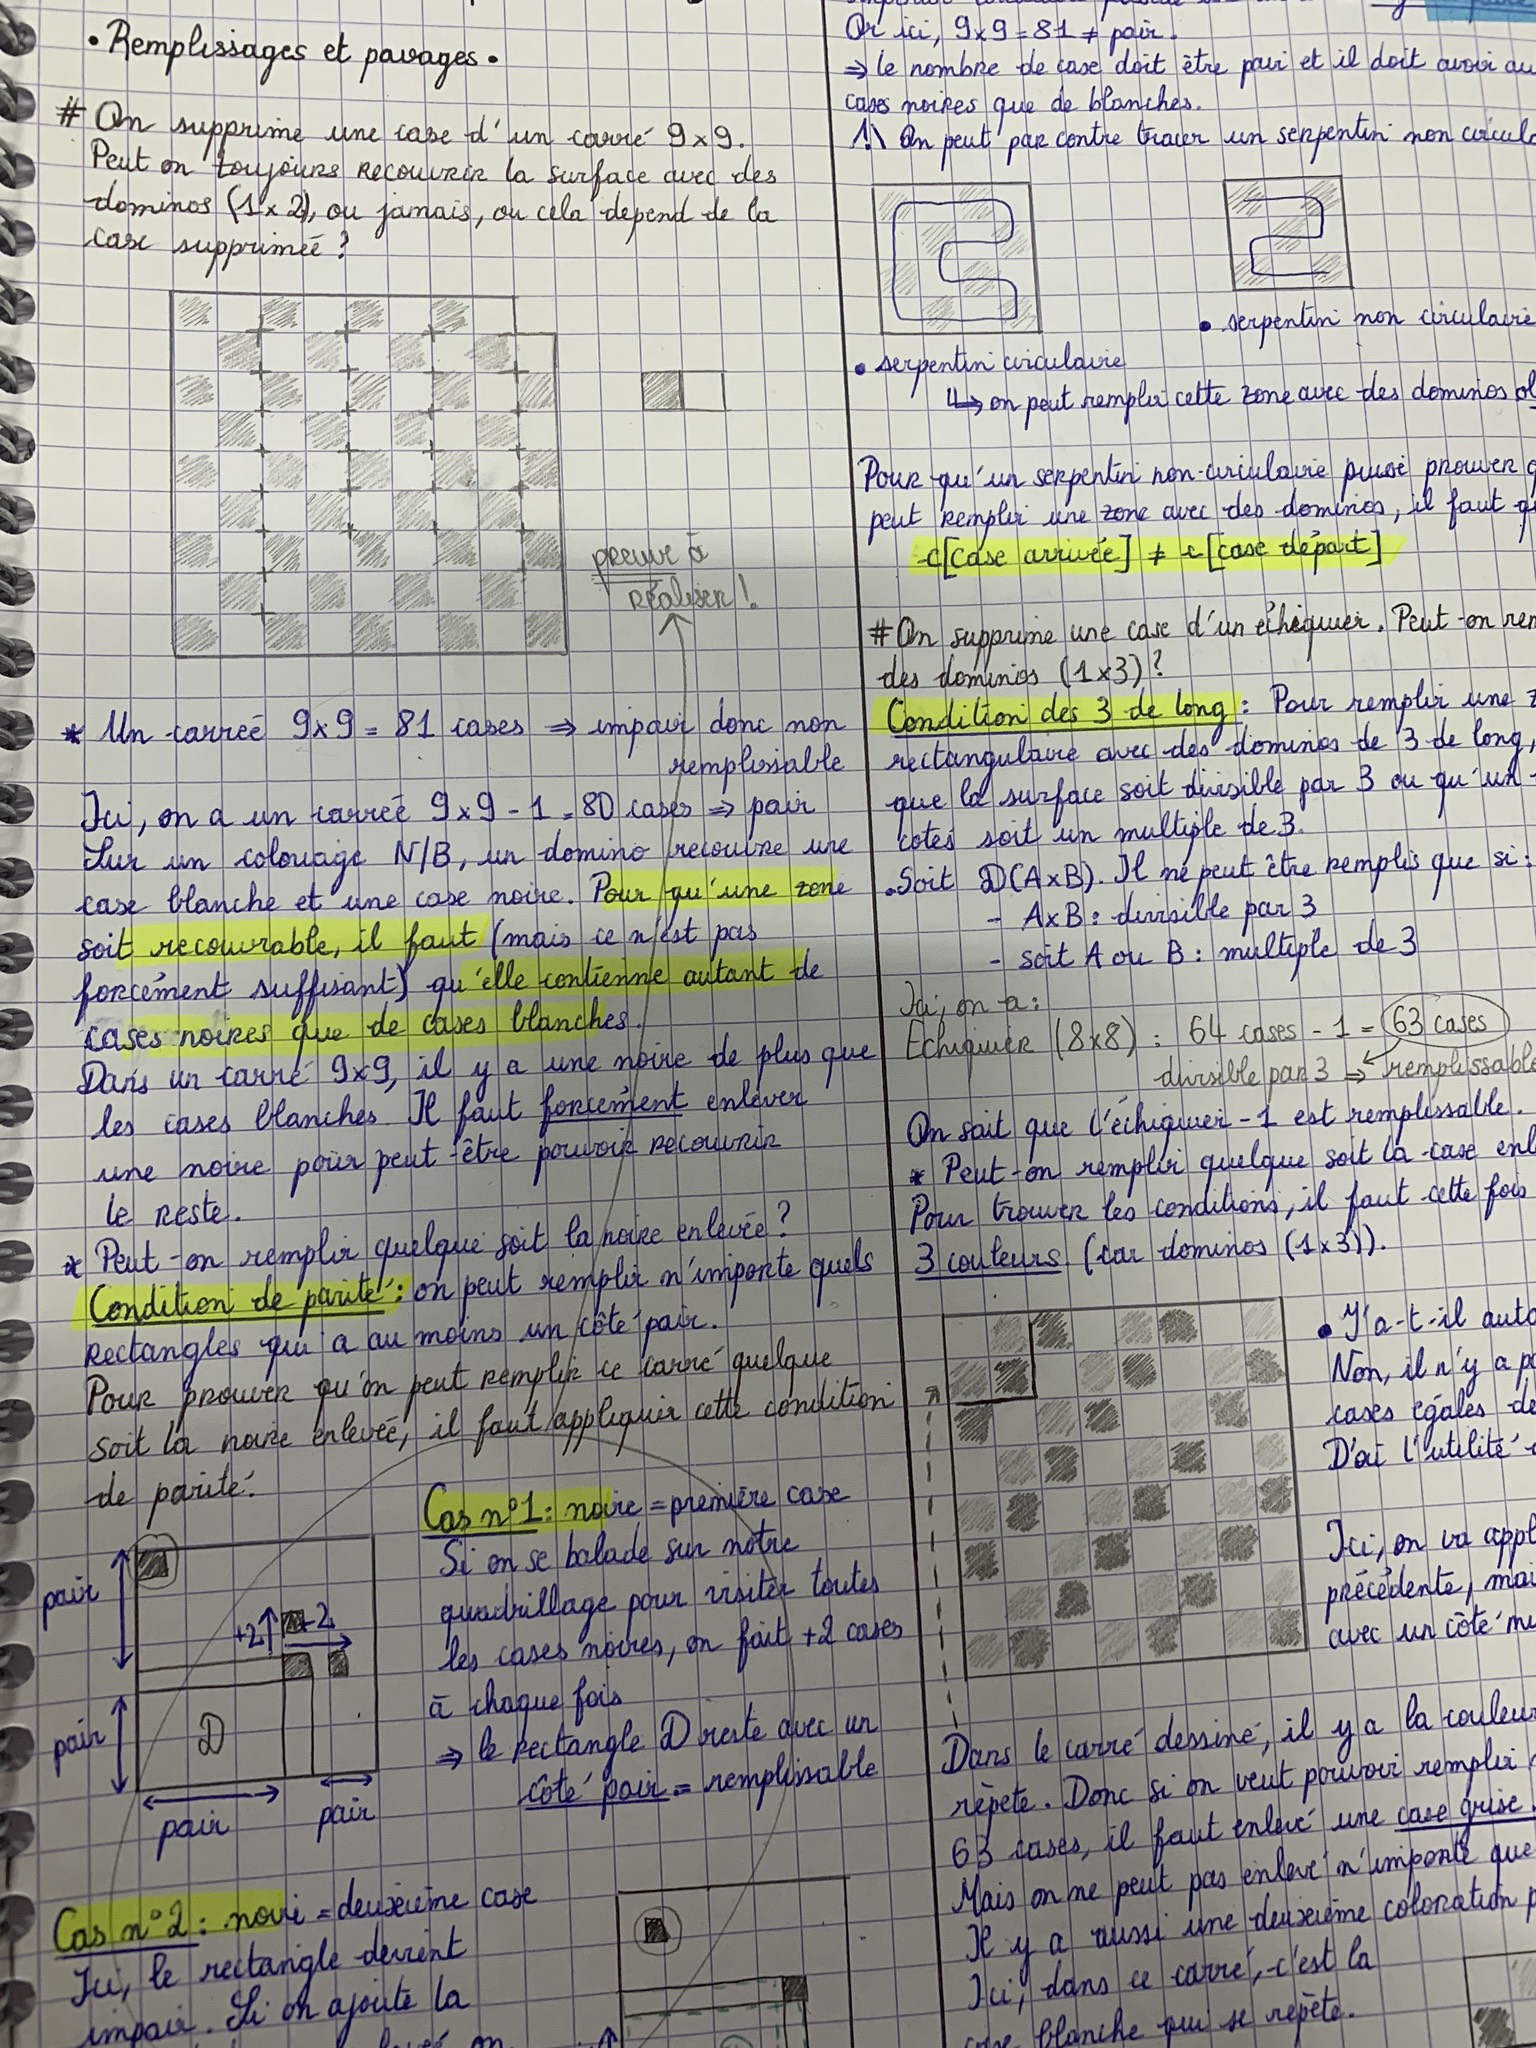 • Remplissages et pavages •
# On supprime une case d'un carré 9x9.
Peut on toujours recouvrir la surface avec des
dominos (1x2), ou jamais, ou cela depend de la
case suppriméé ?
preuve à
réaliser !
* Un carréé 9x9 = 81 cases ⇒ impair donc non
remplissable
Ici, on a un carréé 9x9 - 1 = 80 cases ⇒ pair
Sur un coloriage N/B, un domino recouvre une
case blanche et une case noire. Pour qu'une zone
soit recouvrable, il faut (mais ce n'est pas
forcément suffisant) qu'elle contienne autant de
cases noires que de cases blanches.
Dans un carré 9x9, il y a une noire de plus que
les cases blanches. Il faut forcément enlever
une noire pour peut-être pouvoir recouvrir
le reste.
* Peut-on remplir quelque soit la noire enlevée ?
Condition de parité : on peut remplir n'importe quels
rectangles qui a au moins un côté pair.
Pour prouver qu'on peut remplir ce carré quelque
soit la noire enlevée, il faut appliquer cette condition
de parité.
Cas n°1 : noire = première case
Si on se balade sur notre
quadrillage pour visiter toutes
les cases noires, on fait +2 cases
à chaque fois
⇒ le rectangle D reste avec un
côté pair = remplissable
pair
pair
+2
+2
D
pair
pair
Cas n°2 : noire = deuxième case
Ici, le rectangle devient
impair. Si on ajoute la
Or ici, 9x9 = 81 ≠ pair.
⇒ le nombre de case doit être pair et il doit avoir au
cases noires que de blanches.
/!\ On peut par contre tracer un serpentin non circula
• serpentin circulaire
• serpentin non circulaire
↳ on peut remplir cette zone avec des dominos
Pour qu'un serpentin non-circulaire puisse prouver q
peut remplir une zone avec des dominos, il faut qu
c[case arrivée] ≠ c[case départ]
# On supprime une case d'un échiquier. Peut-on rem
des dominos (1x3) ?
Condition des 3 de long : Pour remplir une z
rectangulaire avec des dominos de 3 de long,
que la surface soit divisible par 3 ou qu'un
cotés soit un multiple de 3.
. Soit D(AxB). Il ne peut être remplis que si :
- AxB : divisible par 3
- soit A ou B : multiple de 3
Ici, on a :
Echiquier (8x8) : 64 cases - 1 = 63 cases
divisible par 3 ⇒ remplissable
On sait que l'échiquier - 1 est remplissable.
* Peut-on remplir quelque soit la case enl
Pour trouver les conditions, il faut cette fois
3 couleurs (car dominos (1x3)).
• Y'a-t-il auta
Non, il n'y a pa
cases égales de
D'où l'utilité
Ici, on va appl
précédente, mai
avec un côté mu
Dans le carré dessiné, il y a la couleur
répète. Donc si on veut pouvoir remplir
63 cases, il faut enlevé une case grise.
Mais on ne peut pas enlevé n'importe que
Il y a aussi une deuxième coloration p
Ici, dans ce carré, c'est la
case blanche qui se répète.